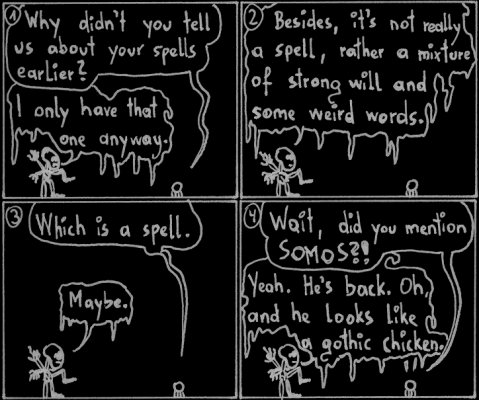 1
Why didn't you tell
us about your spells
earlier?
I only have that
one anyway.
2
Besides, it's not really
a spell, rather a mixture
of strong will and
some weird words.
3
Which is a spell.
Maybe.
4
Wait, did you mention
SOMOS?!
Yeah. He's back. Oh,
and he looks like
a gothic chicken.